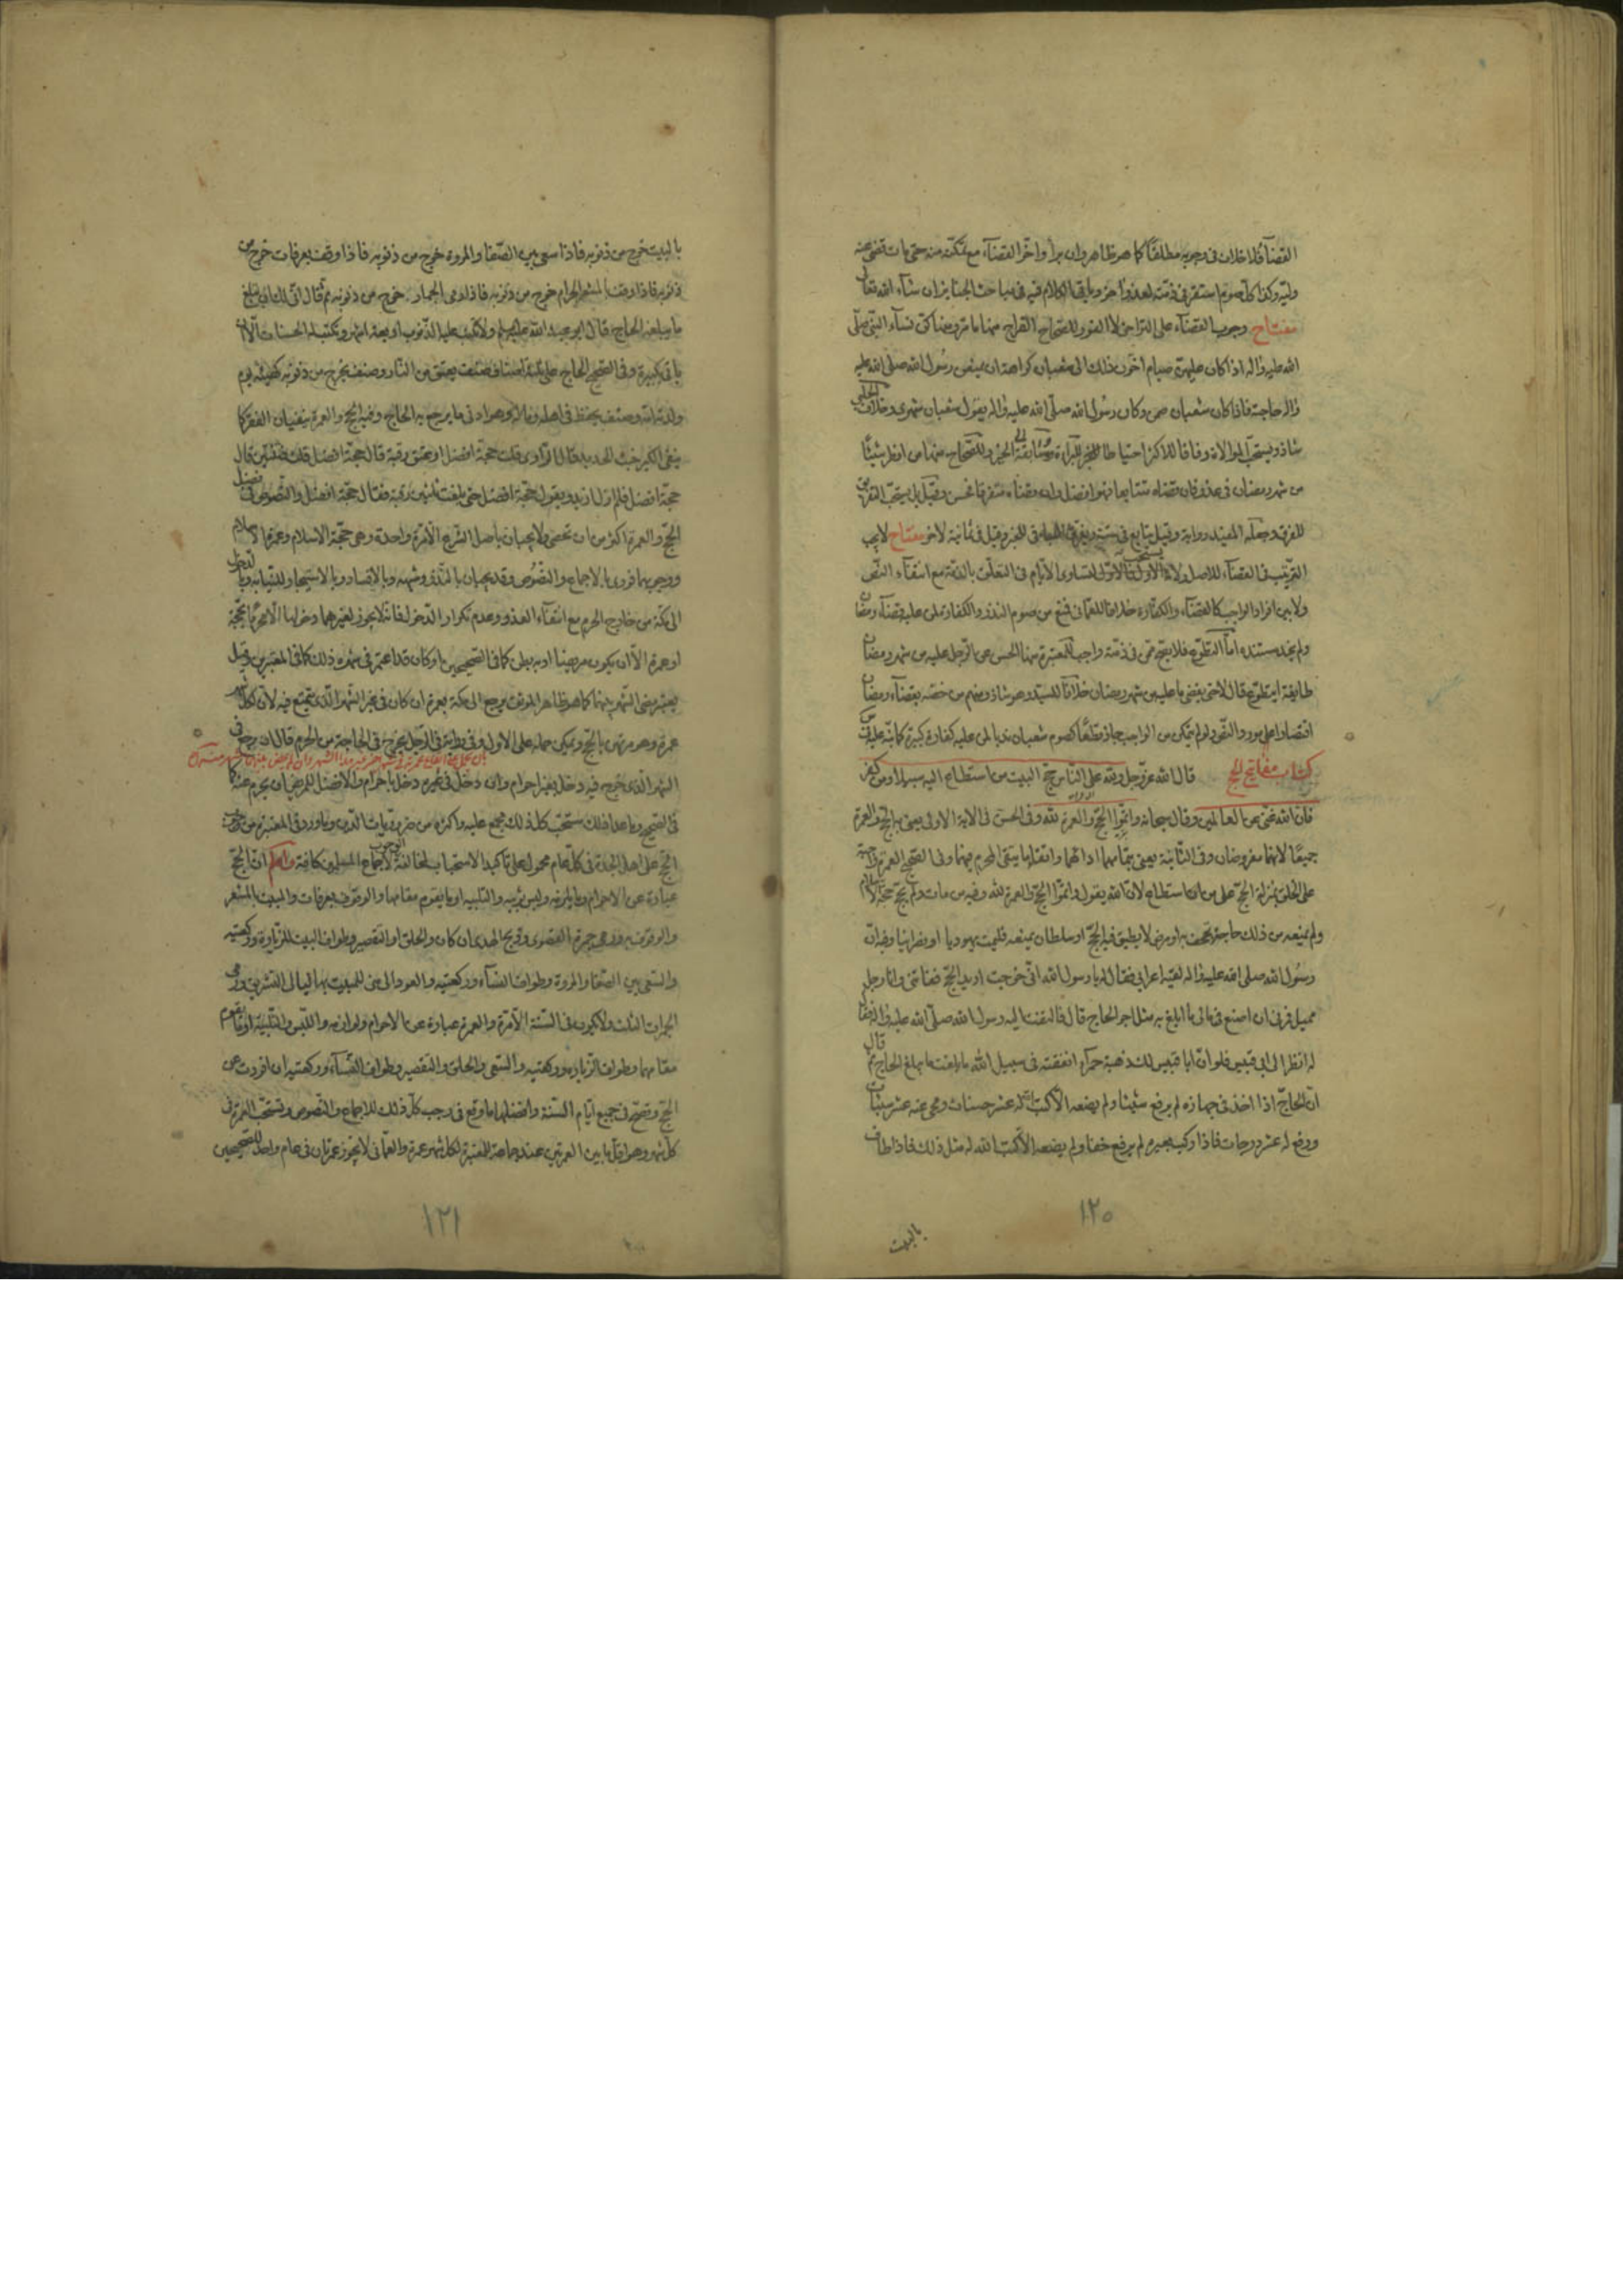 القضآء فلا خلاف فى وجوبه مطلقا كما هو ظاهر وان برأ واخّر القضآء مع تمكنه منه حتى مات قضى عنه
وليّه وكذا كل صوم استقر فى ذمّته لعذر وآخر وياتى الكلام فيه فى مباحث الجنايز ان شآء الله تعالى
مفتاح وجوب القضآء على التراخى لا الفور للصّحاح
الله عليه واله اذا كان عليهنّ صيام اخّرن ذلك الى شعبان كراهة ان يمنعن رسول الله صلى الله عليه
واله حاجته فاذا كان شعبان صمن وكان رسول الله صلّى الله عليه واله يقول شعبان شهرى وخلاف الحلبى
شاذ ويستحبّ الموالاة وفاقا للاكثر احتياطا للبرآءة ومسابقة الى الخير وللصّحاح منها من افطر شيئًا
من شهر رمضان فى عذر فان قضاه متتابعا فهو افضل وان قضاه متفرقا فحسن وقيل بل يستحبّ التفريق
للفرق وجعله المفيد رواية وقيل يتابع فى ستة وقيل فى ثمانية لاخر مفتاح لا يجب
الترتيب فى القضآء للاصل ولا يستحب الاوّل فالاوّل لتساوى الايّام فى التعلّق بالذمّة مع انتفآء النّص
ولا بين افراد الواجب كالقضآء والكفّارة خلافا للعمّانى فمنع من صوم النذر والكفارة لمن عليه قضآء رمضان
ولم نجد مستنده امّا التطوّع فلا يصح ممّن فى ذمّته واجب للمعتبرة منها الحسن عن الرّجل عليه من شهر رمضان
طايفة ايتطوّع فقال لا حتى يقضى ما عليه من شهر رمضان خلافا للسيّد وهو شاذ ومنهم من خصّه بقضآء رمضان
اقتصارا على مورد النّص ولو لم يتمكن من الواجب جاز مطلقًا كصوم شعبان ندبا لمن عليه كفارة كبيرة
كتاب مفاتيح الحج قال الله عزّ وجلّ ولله على النّاس حجّ البيت من استطاع اليه سبيلا ومن كفر
فان الله غنىّ عن العالمين وقال سبحانه واتمّوا الحجّ والعمرة لله وفى الحسن فى الاية الاولى يعنى به الحج والعمرة
جميعًا لانهما مفروضان وفى الثّانية يعنى بتمامهما ادائهما واتقاء ما يتقى المحرم فيهما وفى الصّحيح العمرة واجبة
على الخلق بمنزلة الحجّ على من استطاع لان الله يقول واتمّوا الحجّ والعمرة لله وفيه من مات ولم يحجّ حجّة الاسلام
ولم يمنعه من ذلك حاجة تجحف به او مرض لا يطيق فيه الحجّ او سلطان يمنعه فليمت يهوديا او نصرانيا وفيه انّ
رسول الله صلى الله عليه واله لقيه اعرابى فقال له يا رسول الله انّى خرجت اريد الحجّ ففاتنى وانا رجل
مميل فمرنى ان اصنع فى مالى ما ابلغ به مثل اجر الحاج قال فالتفت اليه رسول الله صلّى الله عليه واله فقال
له انظر الى ابى قبيس فلو انّ ابا قبيس لك ذهبة حمرآء انفقته فى سبيل الله ما بلغت ما يبلغ الحاج ثم قال
ان الحاجّ اذا اخذ فى جهازه لم يرفع شيئا ولم يضعه الا كتب الله له عشر حسنات ومحى عنه عشر سيئات
ورفع له عشر درجات فاذا ركب بعيره لم يرفع خفا ولم يضعه الا كتب الله له مثل ذلك فاذا طاف
١٢٠
بالبيت
بالبيت خرج من ذنوبه فاذا سعى بين الصّفا والمروة خرج من ذنوبه فاذا وقف بعرفات خرج من
ذنوبه فاذا وقف بالمشعر الحرام خرج من ذنوبه فاذا رمى الجمار خرج من ذنوبه ثم قال انّى لك ان تبلغ
ما يبلغه الحاج قال ابو عبد الله عليه السلم ولا تكتب عليه الذّنوب اربعة اشهر وتكتب له الحسنات الّا ان
ياتى بكبيرة وفى الصّحيح الحاج على ثلثة اصناف صنف يعتق من النّار وصنف يخرج من ذنوبه كهيئة يوم
ولدته امّه وصنف يحفظ فى اهله وماله وهو ادنى ما يرجع به الحاج وفيه الحجّ والعمرة ينفيان الفقر كما
ينفى الكير خبث الحديد
حجّة افضل فلم ازل ازيد ويقول حجّة افضل حتى بلغت ثلثين رقبة فقال حجّة افضل والنّصوص فى فضل
الحجّ والعمرة اكثر من ان تحصى ولا يجبان باصل الشّرع الّا مرّة واحدة وهى حجّة الاسلام وعمرة الاسلام
ووجوبهما فورى بالاجماع والنّصوص وقد يجبان بالنّذر وشبهه وبالافساد وبالاستيجار للنّيابة وبالدخول
الى مكّة من خارج الحرم مع انتفآء العذر وعدم تكرار الدّخول فانّه لا يجوز لغيرهما دخولها الّا محرمًا بحجّة
او عمرة الّا ان يكون مريضا او به بطن كما فى الصّحيحين او كان قد اعتمر فى شهره ذلك كما فى المعتبرين وقيل
يعتبر مضى الشّهر بينهما كما هو ظاهر الموثق يرجع الى مكة بعمرة ان كان فى غير الشّهر الّذى يتمتع فيه لان لكل شهر
عمرة وهو مرتهن بالحجّ ويمكن حمله على الاول وفى رواية فى الرّجل يخرج فى الحاجة من الحرم قال ان رجع فى
الشهر الّذى خرج فيه دخل بغير احرام وان دخل فى غيره دخل باحرام والافضل للمريض ان يحرم عنه كما
فى الصّحيح وما عدا ذلك مستحبّ كل ذلك مجمع عليه واكثره من ضروريات الدّين وما ورد فى المعتبرة من وجوب
الحجّ على اهل الجدة فى كلّ عام محمول على تاكيد الاستحباب لمخالفة الوجوب لاجماع المسلمين كافة واعلم انّ الحجّ
عبارة عن الاحرام ولبس ثوبيه والتلبيه او ما يقوم مقامها والوقوف بعرفات والمبيت بالمشعر
والوقوف به ورمى جمرة القصوى وذبح الهدى ان كان والحلق او التقصير وطواف البيت للزّيارة وركعتيه
والسّعى بين الصّفا والمروة وطواف النسآء وركعتيه والعود الى منى للمبيت بها ليالى التشريق ورمى
الجمرات الثلث ولا يكون فى السّنة الّا مرّة والعمرة عبارة عن الاحرام ولوازمه واللّبس والتّلبية او ما يقوم
مقامها وطواف الزّيارة وركعتيه والسّعى والحلق والتقصير وطواف النّسآء وركعتيه ان افردت عن
الحجّ وتصحّ فى جميع ايّام السّنة وافضلها ما وقع فى رجب كلّ ذلك للاجماع والنّصوص وتستحبّ العمرة فى
كلّ شهر وهو اقلّ ما بين العمرتين عند جماعة للمعتبرة لكل شهر عمرة والعمّانى لا يجوز عمرتان فى عام واحد للصّحيحين
١٢١